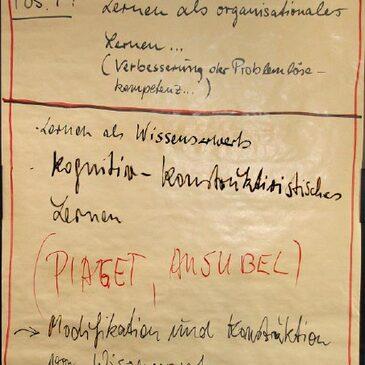 Pos. 1: Lernen als organisationales
Lernen...
(Verbesserung der Problemlöse-
kompetenz...)
- Lernen als Wissenserwerb
- Kognitiv-Konstruktivistisches
Lernen
(PIAGET, AUSUBEL)
→ Modifikation und Konstruktion
von